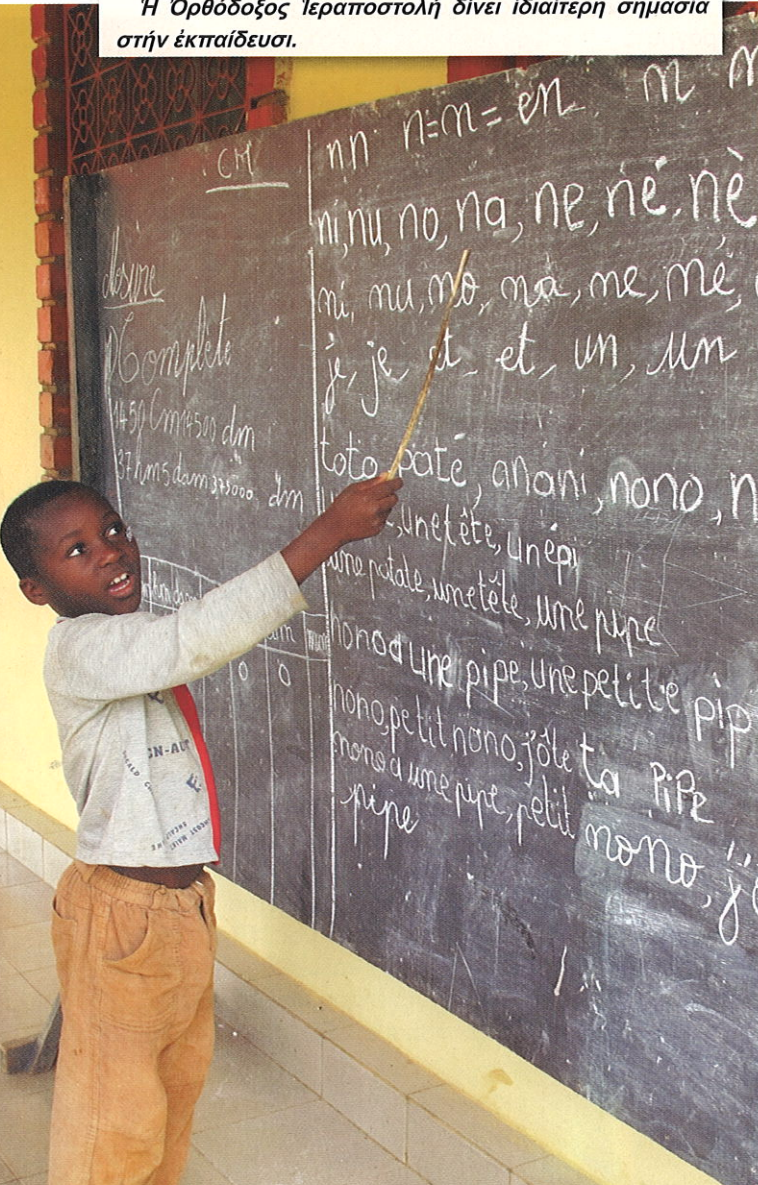 Ἡ Ὀρθόδοξος Ἱεραποστολή δίνει ἰδιαίτερη σημασία
στήν ἐκπαίδευσι.
CM
Complète
1459 Cm 14500 dm
37 hm 5 dam 375000 dm
0 0
nn n=n= en n
ni, nu, no, na, ne, né, nè
ni, nu, no, na, ne, né,
je, je et, et, un, un
toto, paté, anani, nono, n
, une tête, un épi
une patate, une tête, une pipe
nono a une pipe, une petite pip
nono, petit nono, j'ôte ta PiPE
nono a une pipe, petit nono, j'ô
pipe